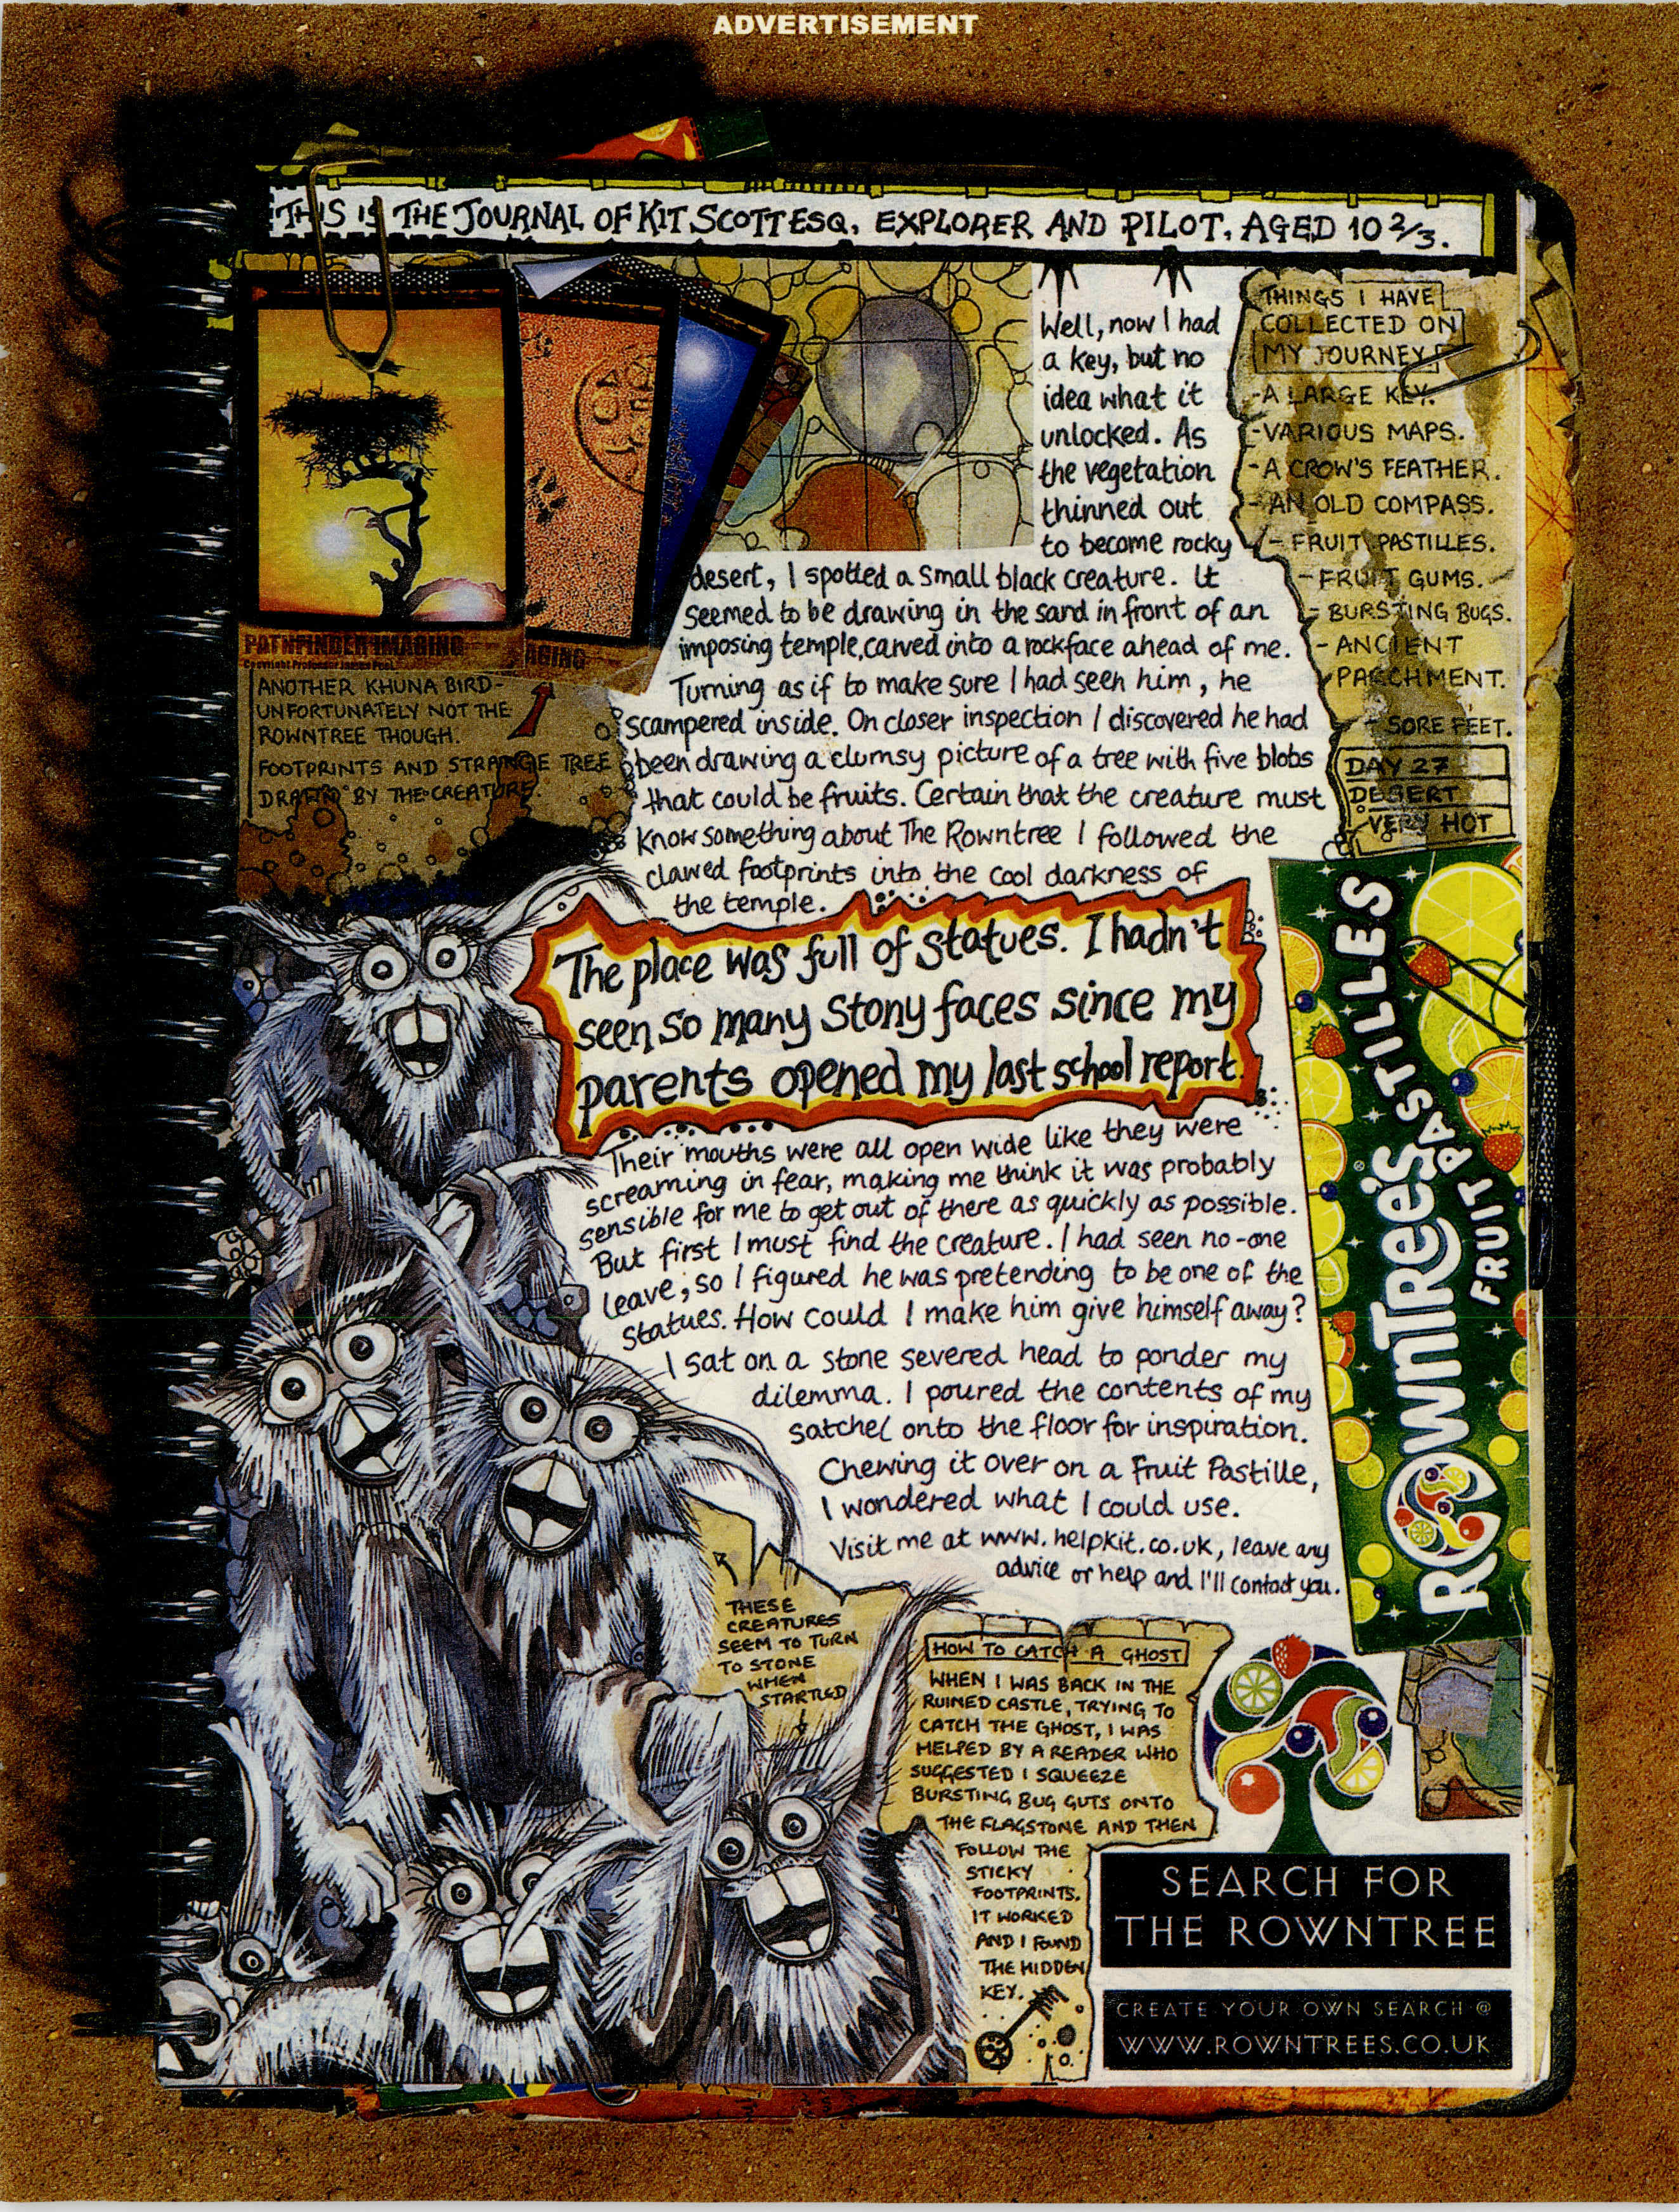 ADVERTISEMENT
THIS IS THE JOURNAL OF KIT SCOTT ESQ, EXPLORER AND PILOT, AGED 10 2/3.
Well, now I had
a key, but no
idea what it
unlocked. As
the vegetation
thinned out
to become rocky
desert, I spotted a small black creature. It
seemed to be drawing in the sand in front of an
imposing temple, carved into a rockface ahead of me.
Turning as if to make sure I had seen him, he
scampered inside. On closer inspection I discovered he had
been drawing a clumsy picture of a tree with five blobs
that could be fruits. Certain that the creature must
know something about The Rowntree I followed the
clawed footprints into the cool darkness of
the temple.
THINGS I HAVE
COLLECTED ON
MY JOURNEY
-A LARGE KEY.
-VARIOUS MAPS.
-A CROW'S FEATHER.
-AN OLD COMPASS.
-FRUIT PASTILLES.
-FRUIT GUMS.
-BURSTING BUGS.
-ANCIENT
PARCHMENT.
-SORE FEET.
DAY 27
DESERT
VERY HOT
PATHFINDER IMAGING
Copyright Professor James Peel
AGING
ANOTHER KHUNA BIRD-
UNFORTUNATELY NOT THE
ROWNTREE THOUGH.
FOOTPRINTS AND STRANGE TREE
DRAWN BY THE CREATURE.
The place was full of statues. I hadn't
seen so many stony faces since my
parents opened my last school report.
Their mouths were all open wide like they were
screaming in fear, making me think it was probably
sensible for me to get out of there as quickly as possible.
But first I must find the creature. I had seen no-one
leave, so I figured he was pretending to be one of the
statues. How could I make him give himself away?
I sat on a stone severed head to ponder my
dilemma. I poured the contents of my
satchel onto the floor for inspiration.
Chewing it over on a Fruit Pastille,
I wondered what I could use.
Visit me at www.helpkit.co.uk, leave any
advice or help and I'll contact you.
ROWNTREE'S
FRUIT PASTILLES
THESE
CREATURES
SEEM TO TURN
TO STONE
WHEN
STARTLED
HOW TO CATCH A GHOST
WHEN I WAS BACK IN THE
RUINED CASTLE, TRYING TO
CATCH THE GHOST, I WAS
HELPED BY A READER WHO
SUGGESTED I SQUEEZE
BURSTING BUG GUTS ONTO
THE FLAGSTONE AND THEN
FOLLOW THE
STICKY
FOOTPRINTS.
IT WORKED
AND I FOUND
THE HIDDEN
KEY.
SEARCH FOR
THE ROWNTREE
CREATE YOUR OWN SEARCH @
WWW.ROWNTREES.CO.UK